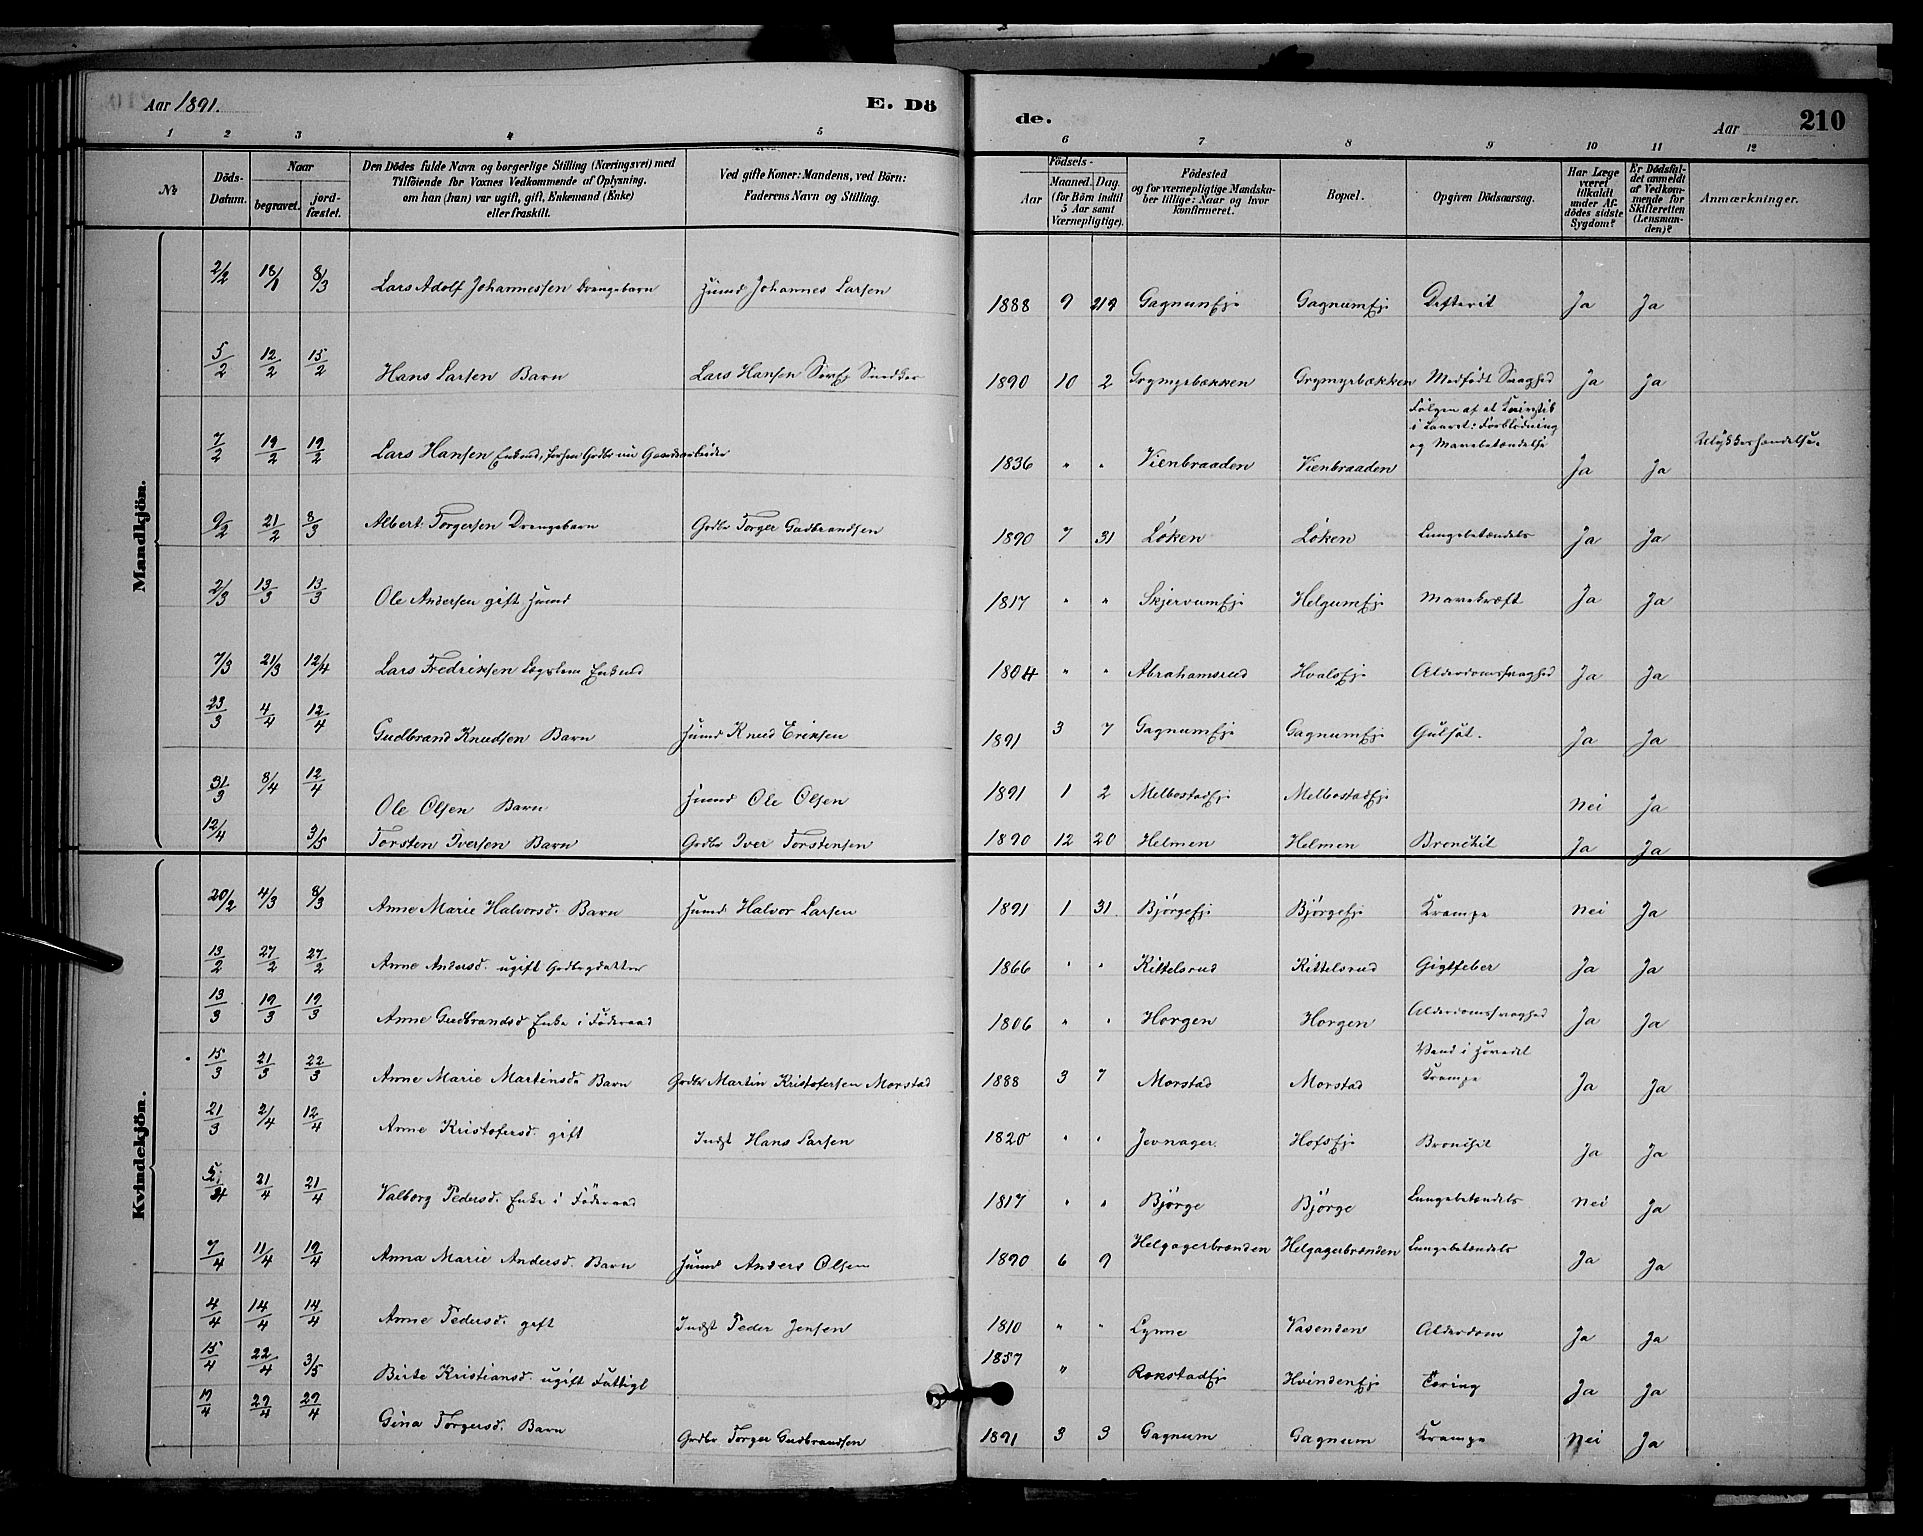 Aar 1891. E. Dö de. Aar 210
1 2 3 4 5 6 7 8 9 10 11 12
No Döds-Datum. Naar begravet. jordfæstet. Den Dödes fulde Navn og borgerlige Stilling (Næringsvei) med Tilföiende for Voxnes Vedkommende af Oplysning, om han (hun) var ugift, gift, Enkemand (Enke) eller fraskilt. Ved gifte Koner: Mandens, ved Börn: Faderens Navn og Stilling. Födsels- Aar Maaned. Dag. (for Börn indtil 5 Aar samt Værnepligtige). Födested og for værnepligtige Mandskaber tillige: Naar og hvor konfirmeret. Bopæl. Opgiven Dödsaarsag. Har Læge været tilkaldt under Afdödes sidste Sygdom? Er Dödsfaldet anmeldt af Vedkommende for Skifteretten (Lensmanden)? Anmærkninger.
Mandkjön.
2/2 8/3 Lars Adolf Johannessen Drengebarn Huusmd Johannes Larsen 1888 9 Gagnumeje Gagnumeje Defterit Ja Ja
5/2 12/2 15/2 Hans Larsen Barn Lars Hansen Snedker 1890 10 2 Grymyrbækken Grymyrbækken Medfødt Svaghed Ja Ja
7/2 19/2 19/2 Lars Hansen Enkmd, Gaardarbeider 1836 " " Vienbraaden Vienbraaden Følgen af et Knivstik i Laaret: Forblødning og Mavebetændelse Ja Ja Ulykkeshændelse.
9/2 21/2 8/3 Albert Torgersen Drengebarn Grdbr Torger Gudbrandsen 1890 7 31 Løken Løken Lungebetændels Ja Ja
2/3 13/3 13/3 Ole Andersen gift Huusmd 1817 " " Skjervumeje Helgumeje Mavekræft Ja Ja
7/3 21/3 12/4 Lars Fredriksen Lægslem Enkmd 1804 " " Abrahamsrud Hvalseje Alderdomssvaghed Ja Ja
23/3 4/4 12/4 Gudbrand Knudsen Barn Huusmd Knud Eriksen 1891 3 7 Gagnumeje Gagnumeje Gulsot. Ja Ja
31/3 8/4 12/4 Ole Olsen Barn Huusmd Ole Olsen 1891 1 2 Melbostadeje Melbostadeje Nei Ja
12/4 3/5 Torsten Iversen Barn Grdbr Iver Torstensen 1890 12 20 Helmen Helmen Bronchit Ja Ja
Kvindekjön.
20/2 4/3 8/3 Anne Marie Halvorsd. Barn Huusmd Halvor Larsen 1891 1 31 Bjørgeeje Bjørgeeje Krampe Nei Ja
13/2 27/2 27/2 Anne Andersd. ugift Grdbrgdatter 1866 " " Kittelsrud Kittelsrud Gigtfeber Ja Ja
13/3 19/3 19/3 Anne Gudbrandsd Enke i Føderaad 1806 " " Horgen Horgen Alderdomssvaghed Ja Ja
15/3 21/3 22/3 Anne Marie Martinsd. Barn Grdbr Martin Kristofersen Morstad 1888 3 7 Morstad Morstad Vand i Hovedet Krampe Ja Ja
21/3 2/4 12/4 Anne Kristofersd. gift Indst Hans Larsen 1820 " " Jevnager. Hofseje Bronchit Ja Ja
5/4 21/4 21/4 Valborg Pedersd. Enke i Føderaad 1817 " " Bjørge Bjørge Lungebetændels Nei Ja
7/4 11/4 19/4 Anna Marie Andersd. Barn Huusmd Anders Olsen 1890 6 9 Helgagerbraaden Helgagerbraaden Lungebetændels Ja Ja
4/4 14/4 14/4 Anne Pedersd. gift Indst Peder Jensen 1810 " " Lynne Vasenden Alderdom Ja Ja
15/4 22/4 3/5 Birte Kristiansd. ugift Fattigl 1857 " Rækstadeje Hvindeneje Tæring Ja Ja
17/4 29/4 29/4 Gina Torgersd. Barn Grdbr Torger Gudbrandsen 1891 3 3 Gagnum Gagnum Krampe Nei Ja